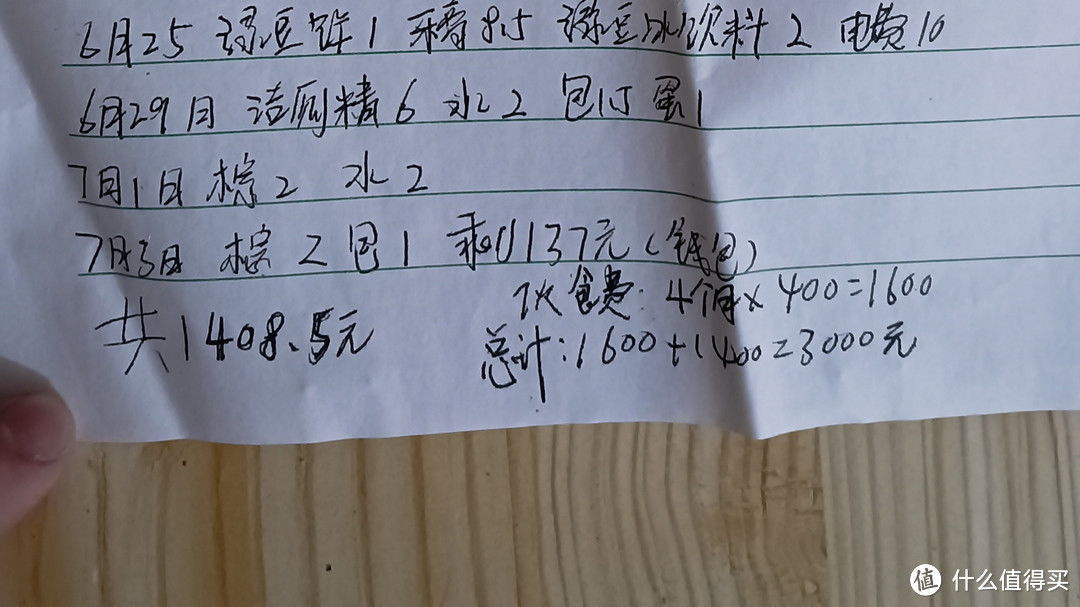 6月25 绿豆饼1 8.5 绿豆冰饮料2 电费10
6月29日 洁厕精6 水2 包1 蛋1
7月1日 粽2 水2
7月3日 粽2 包1 剩1137元(钱包)
共1408.5元
伙食费:4个月×400=1600
总计:1600+1400=3000元
值 什么值得买